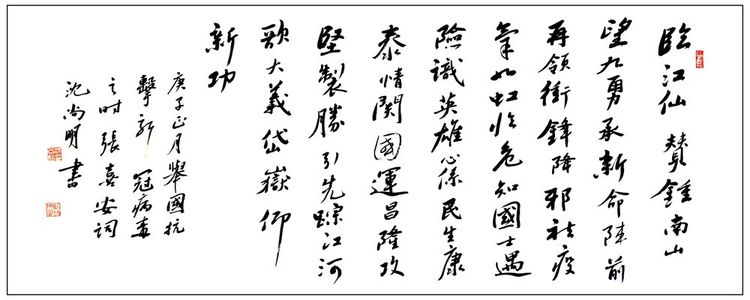 臨江仙 贊鍾南山
望九勇承新命陣前
再領衝鋒降邪祛疫
氣如虹临危知國士遇
險識英雄心係民生康
泰情關國運昌隆攻
堅製勝引先蹤江河
歌大義岱嶽仰
新功
庚子正月舉國抗
擊新冠病毒
之时張喜安詞
沈尚明書